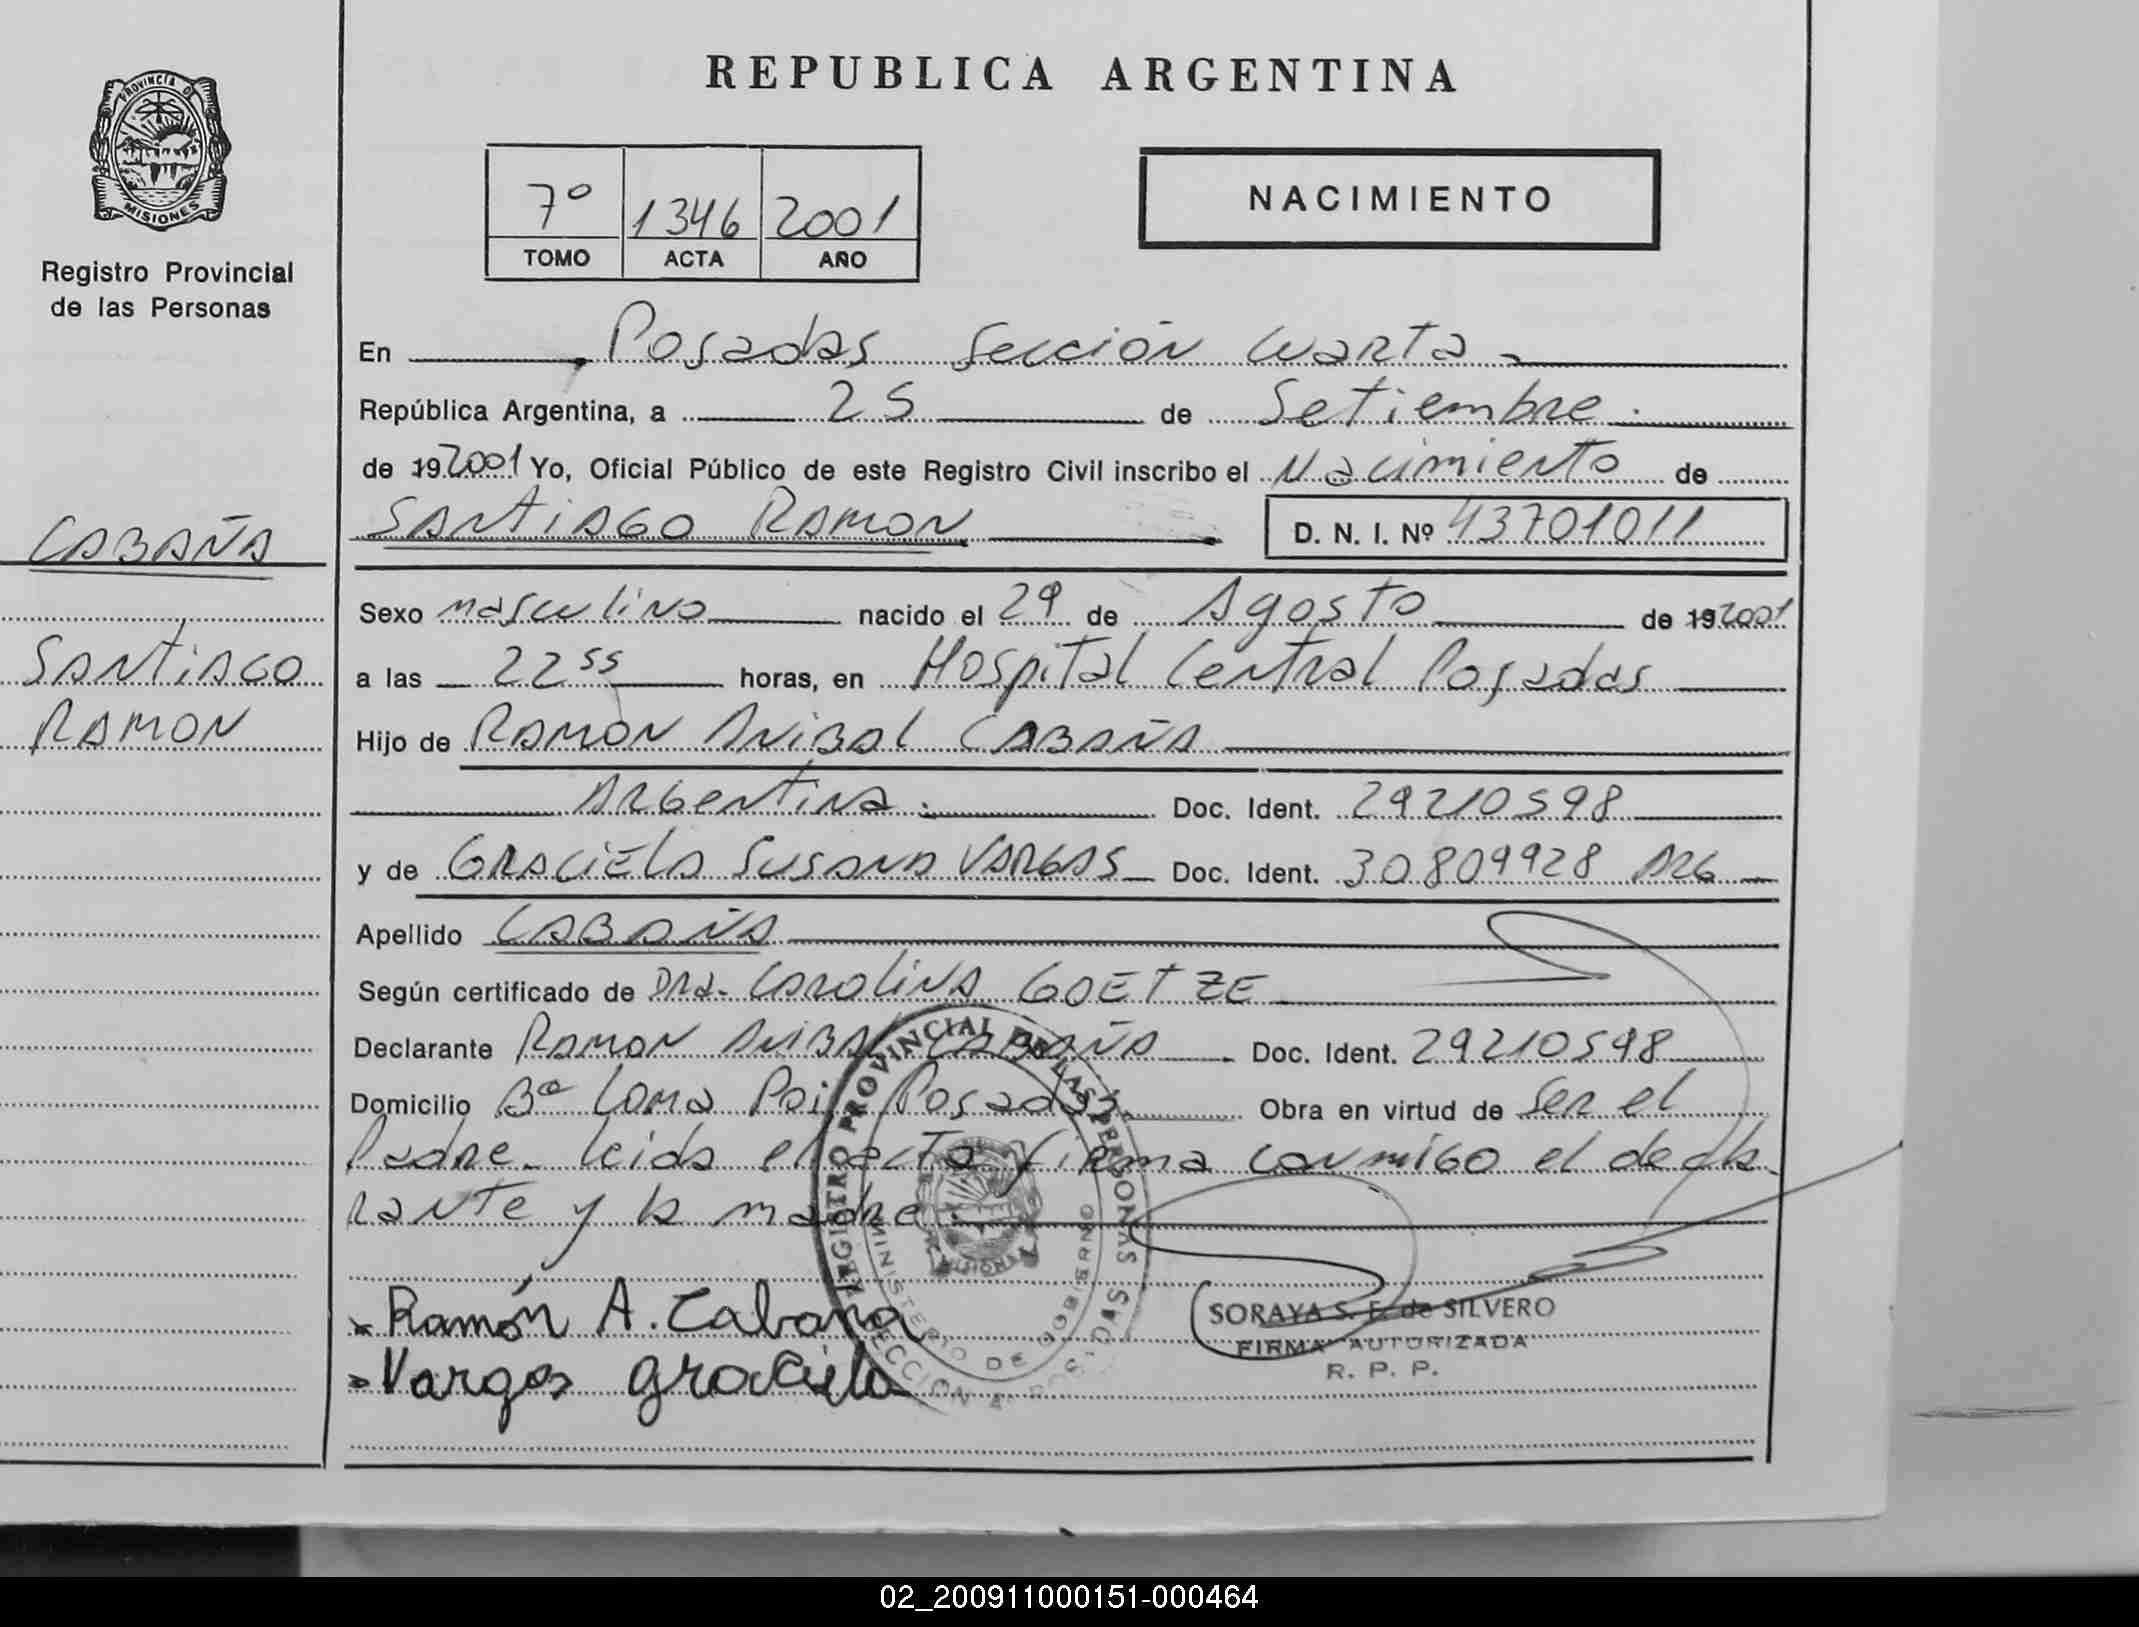 PROVINCIA D
MISIONES
Registro Provincial
de las Personas
CABAÑA
SANTIAGO
RAMON
REPUBLICA ARGENTINA
7º 1346 2001
TOMO ACTA AÑO
NACIMIENTO
En Posadas Sección Cuarta
República Argentina, a 25 de Setiembre
de 19 2001 Yo, Oficial Público de este Registro Civil inscribo el Nacimiento de
SANTIAGO RAMON D. N. I. Nº 43701011
Sexo masculino nacido el 29 de Agosto de 19 2001
a las 22 55 horas, en Hospital Central Posadas
Hijo de RAMON ANIBAL CABAÑA
Argentina. Doc. Ident. 29210598
y de GRACIELA SUSANA VARGAS Doc. Ident. 30809928 ARG
Apellido CABAÑA
Según certificado de Dra. CAROLINA GOETZE
Declarante RAMON ANIBAL CABAÑA Doc. Ident. 29210598
Domicilio Bº Loma Poi Posadas Obra en virtud de Ser el
Padre. Leida el acta firma conmigo el decla
rante y la madre
Ramón A. Cabaña
Vargas graciela
REGISTRO PROVINCIAL DE LAS PERSONAS
MINISTERIO DE GOBIERNO
SECCION 4
MISIONES
SORAYA S. F. de SILVERO
FIRMA AUTORIZADA
R. P. P.
02_200911000151-000464